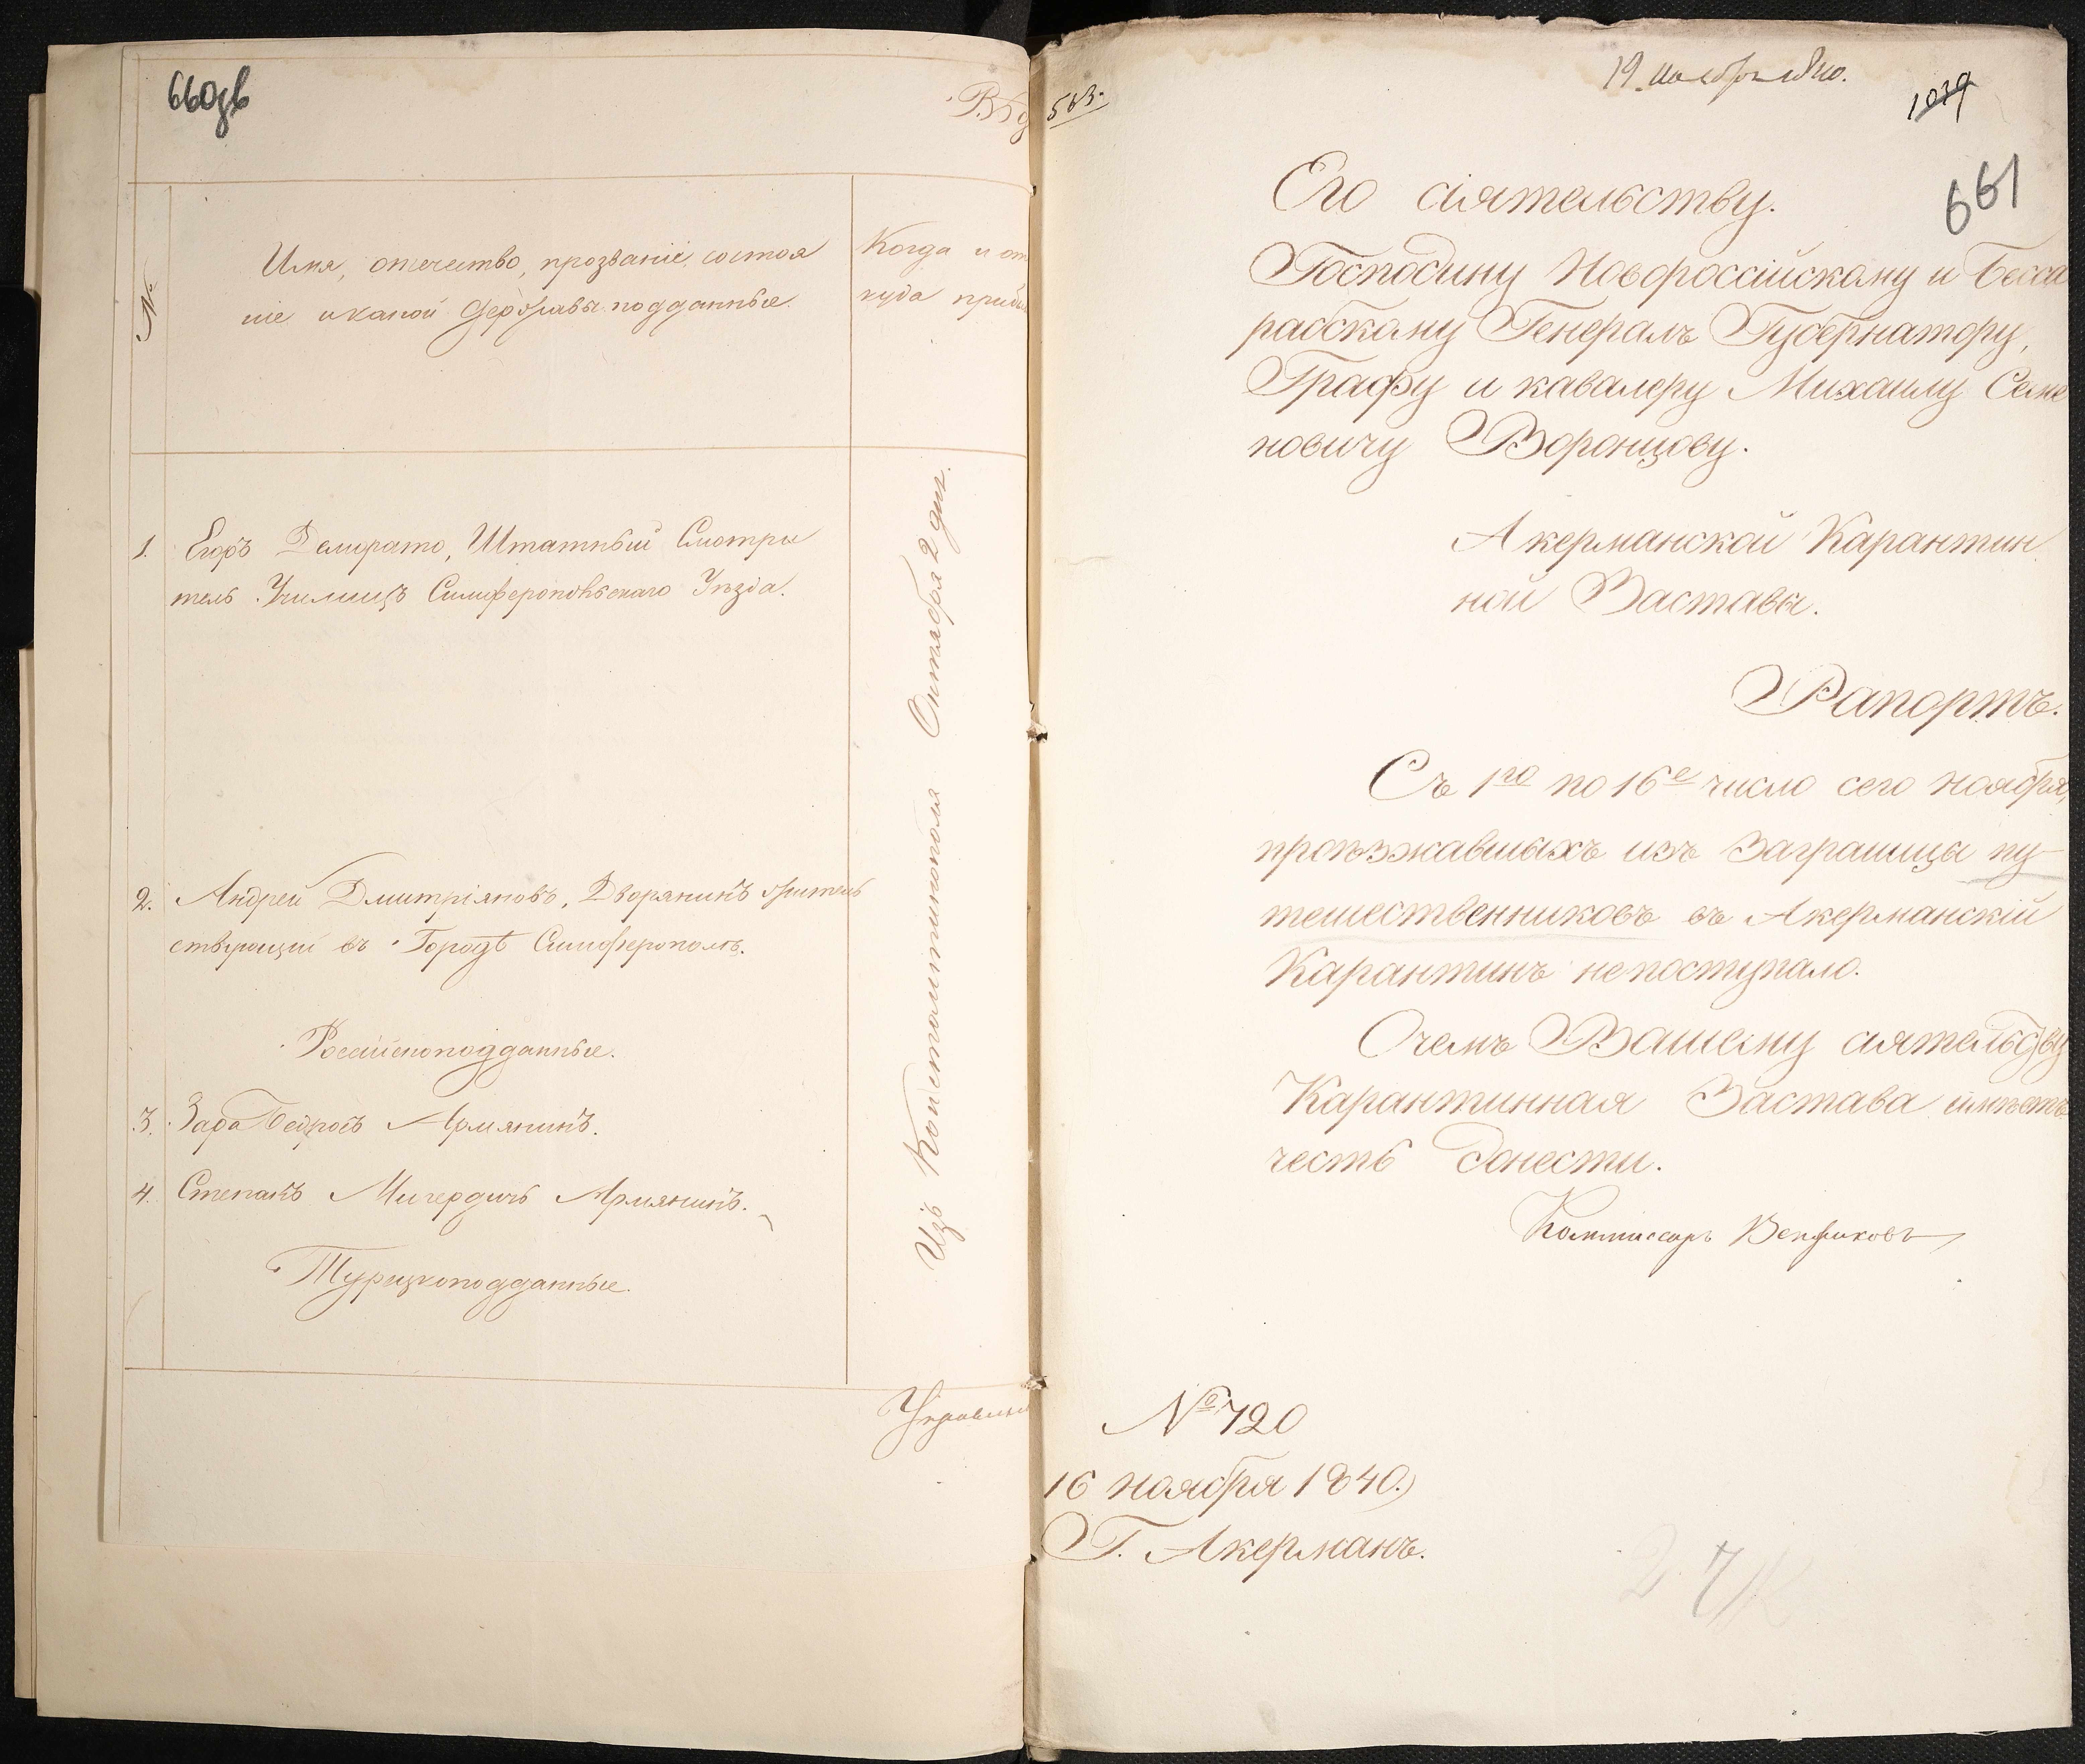 660 об
Вѣд
№
Имя, отечество, прозваніе, состоя
ніе и какой Державы подданные.
Когда и от
куда прибы
1. Егоръ Деморато, Штатный Смотри
тель Училищъ Симферопольскаго Уѣзда.
2. Андрей Дмитріяновъ, Дворянинъ жительствующій въ Городѣ Симферополѣ.
Россійскоподданные.
3. Зара Бедросъ Армянинъ.
4. Степанъ Мигердичъ Армянинъ.
Турецкоподданные.
Изъ Константинополя Октября 2 дня.
Управляю
583.
19 ноября 1840.
1039
661
Его сіятельству.
Господину Новороссійскому и Бесса
рабскому Генералъ Губернатору,
Графу и кавалеру Михаилу Семе
новичу Воронцову.
Акерманской Карантин
ной Заставы.
Рапортъ.
Съ 1го по 16е число сего ноября,
проѣзжавшихъ изъ Заграницы пу-
тешественниковъ въ Акерманскій
Карантинъ непоступало.
Очемъ Вашему сіятельству
Карантинная Застава имѣетъ
честь донести.
Коммисаръ
№ 720
16 ноября 1840.
Г. Акерманъ.